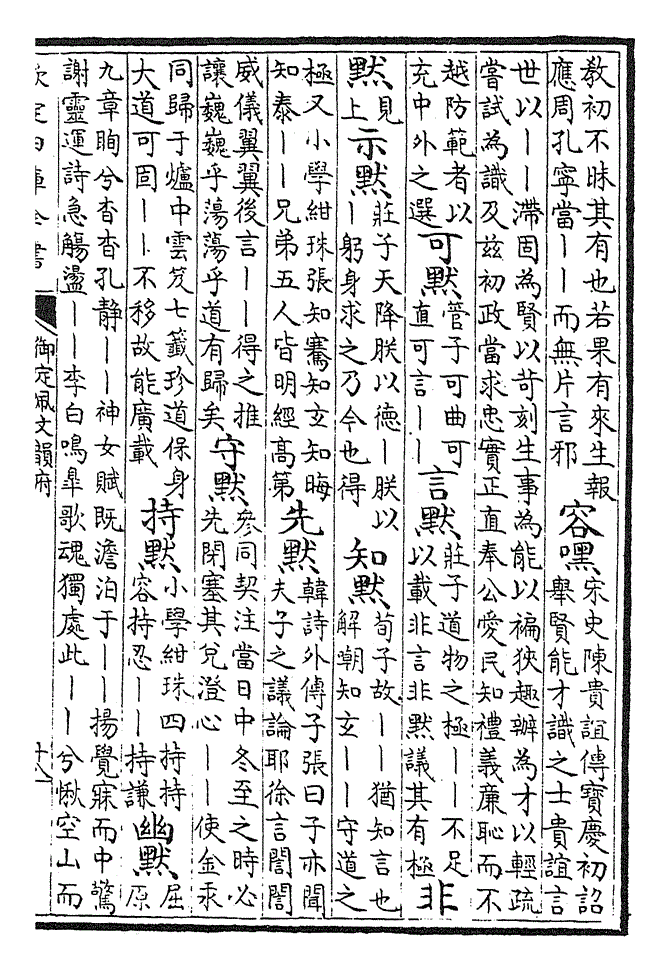 教初不昧其有也若果有來生報
應周孔寧當丨丨而無片言邪
容嘿
宋史陳貴誼傳寶慶初詔
舉賢能才識之士貴誼言
世以丨丨滯固為賢以苛刻生事為能以褊狹趣辦為才以輕疏
嘗試為識及茲初政當求忠實正直奉公愛民知禮義廉恥而不
越防範者以
充中外之選
可默
管子可曲可
直可言丨丨
言默
莊子道物之極丨丨不足
以載非言非默議其有極
非
默
見
上
示默
莊子天降朕以德丨朕以
丨躬身求之乃今也得
知默
荀子故丨丨猶知言也
解嘲知玄丨丨守道之
極又小學紺珠張知騫知玄知晦
知泰丨丨兄弟五人皆明經高第
先默
韓詩外傳子張曰子亦聞
夫子之議論耶徐言誾誾
威儀翼翼後言丨丨得之推
讓巍巍乎蕩蕩乎道有歸矣
守默
參同契注當日中冬至之時必
先閉塞其兌澄心丨丨使金汞
同歸于爐中雲笈七籤珍道保身
大道可固丨丨不移故能廣載
持默
小學紺珠四持持
容持忍丨丨持謙
幽默
屈
原
九章眴兮杳杳孔靜丨丨神女賦既澹泊于丨丨揚覺寐而中驚
謝靈運詩急觴盪丨丨李白鳴臯歌魂獨處此丨丨兮愀空山而
欽定四庫全書
御定佩文韻府
十八